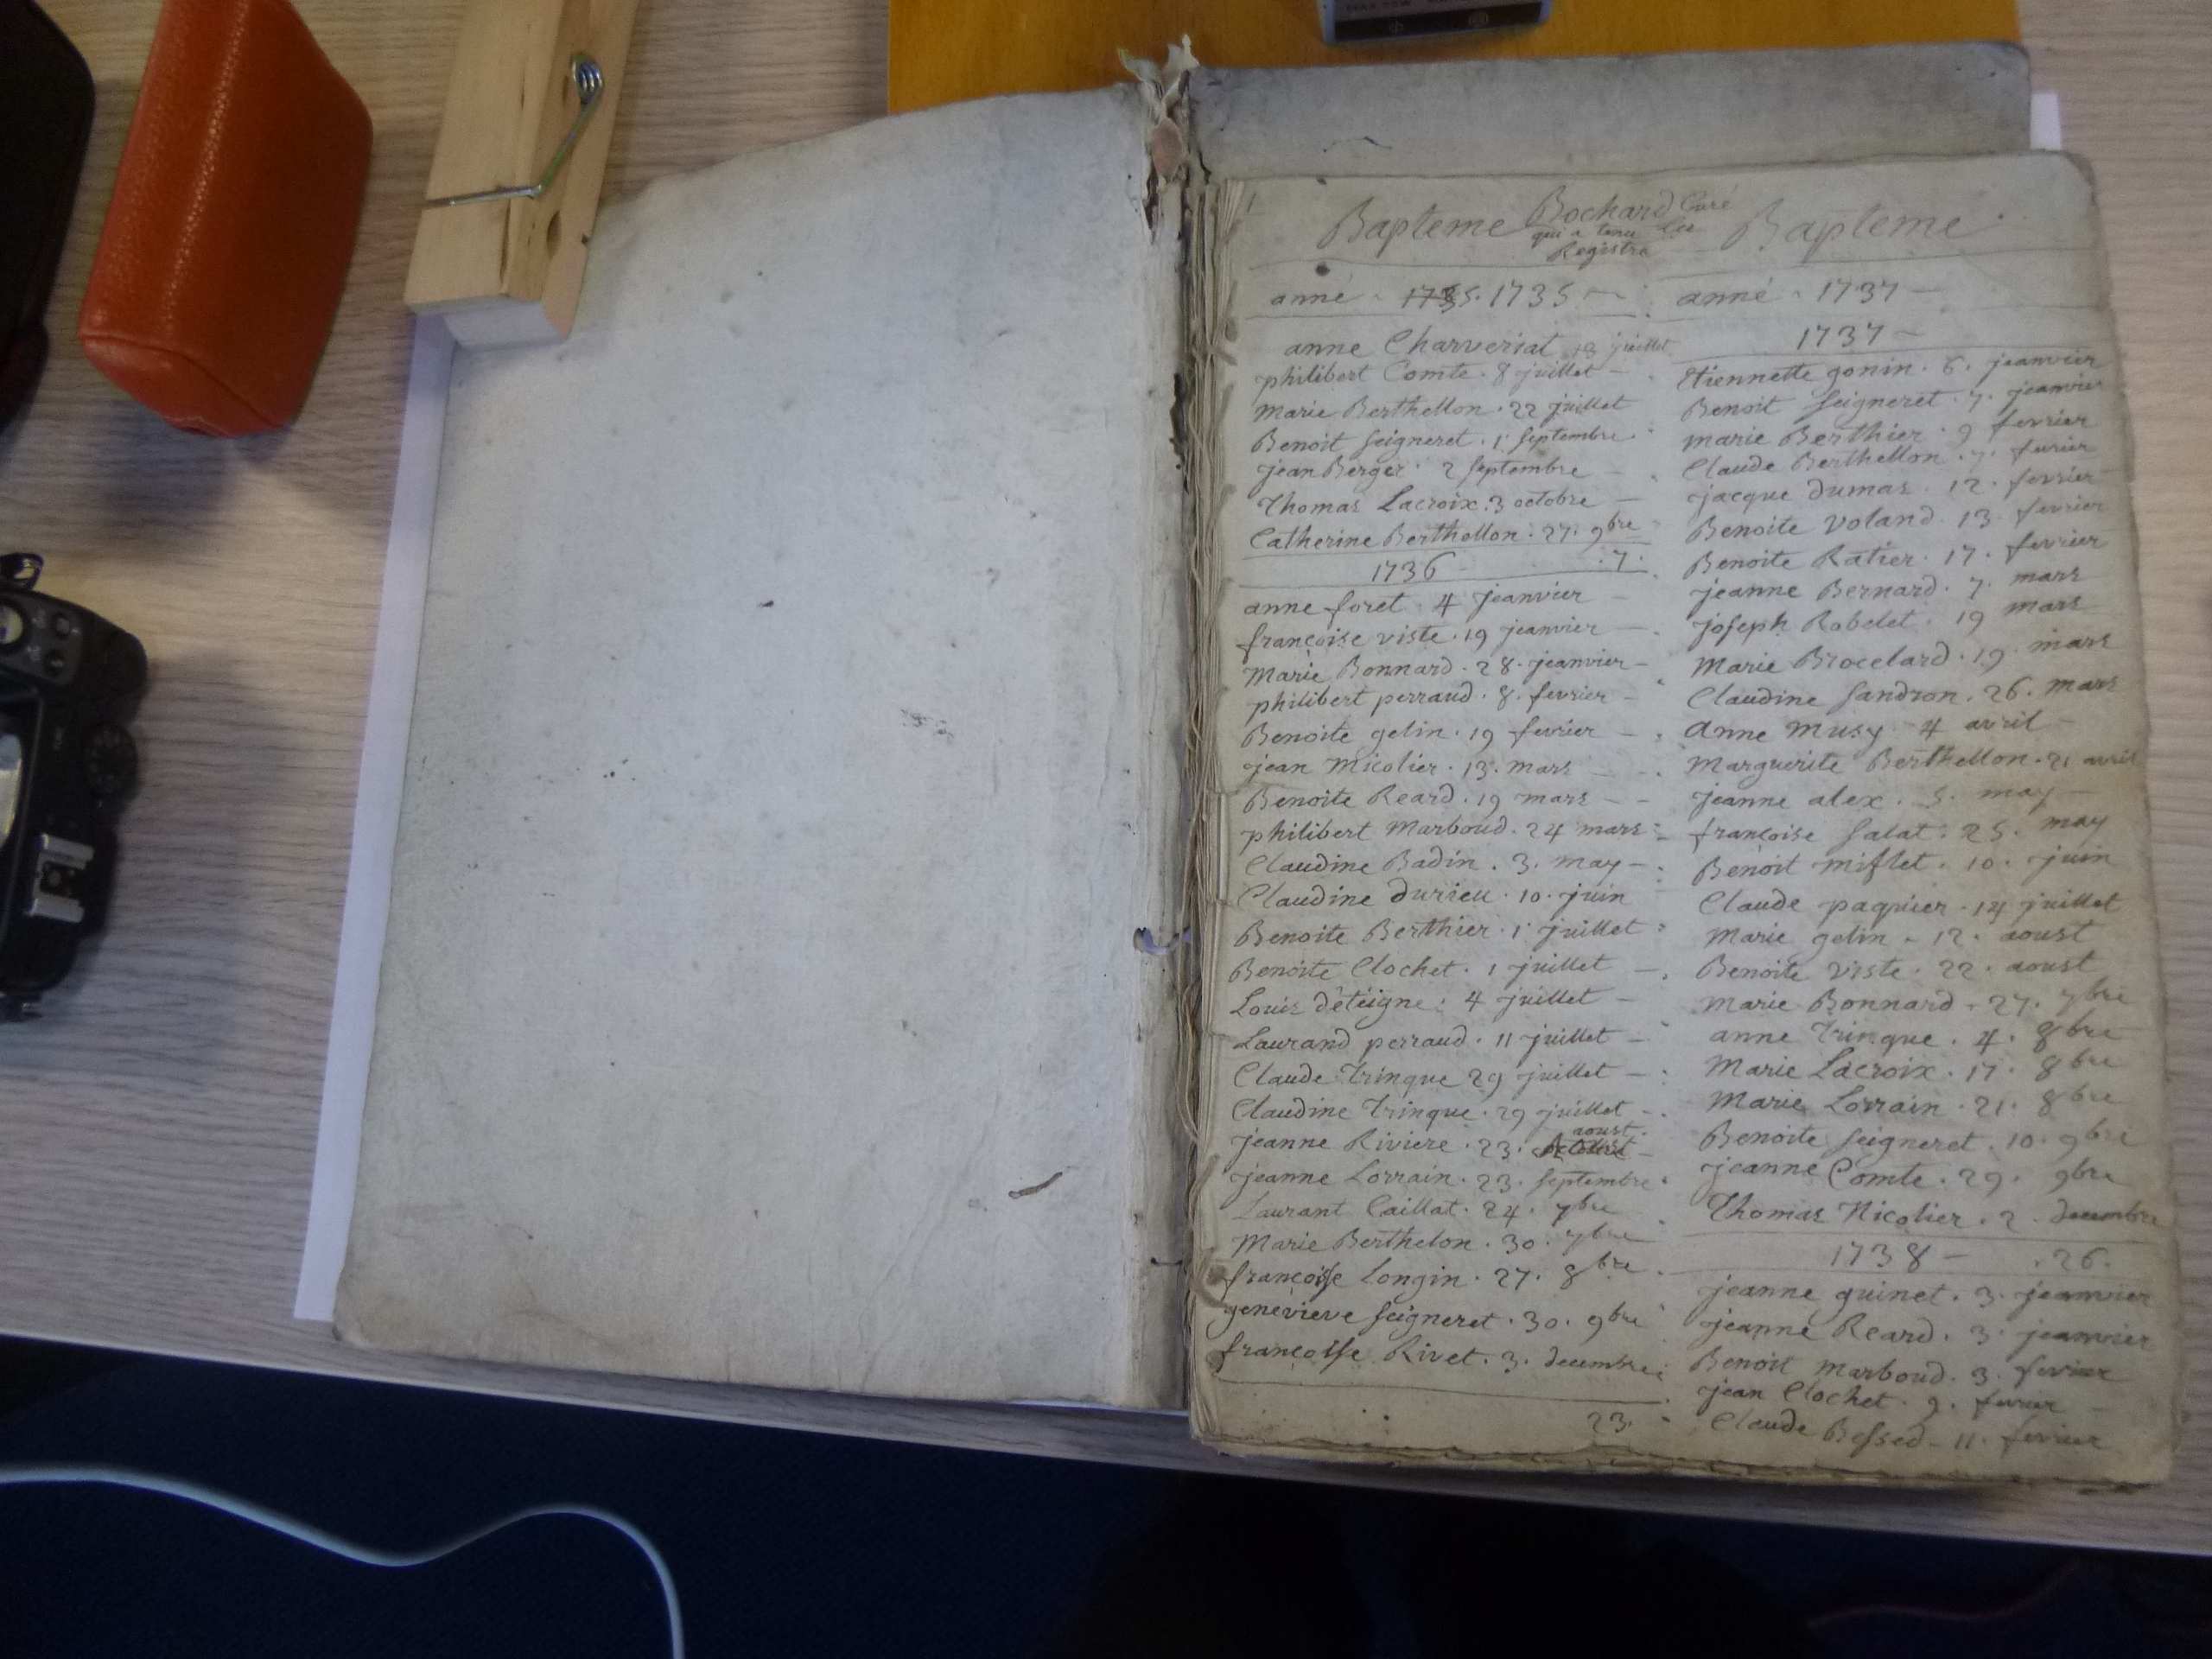 Bapteme Bochard Curé
qui a tenu les
Registre
Bapteme
anné 1735
anne Charveriat 13 juillet
philibert Comte . 8 juillet
marie Berthellon . 22 juillet
Benoit Seigneret . 1 septembre
jean Berger 2 septembre
Thomas Lacroix . 3 octobre
Catherine Berthellon . 27 . 9bre
. 7 .
1736
anne foret 4 jeanvier
françoise viste . 19 jeanvier
Marie Bonnard . 28 . jeanvier
philibert perraud . 8 . fevrier
Benoite gelin . 19 fevrier
jean Micolier . 13 . mars
Benoite Reard . 19 mars
philibert Marboud . 24 mars
Claudine Badin . 3 . may
Claudine durieu . 10 . juin
Benoite Berthier . 1 juillet
Benoite Clochet . 1 juillet
Louis d'éteigne . 4 juillet
Laurand perraud . 11 juillet
Claude Trinque 29 juillet
Claudine Trinque . 29 juillet
jeanne Riviere . 23 . aoust
jeanne Lorrain . 23 . septembre
Laurant Caillat . 24 . 7bre
Marie Berthelon . 30 . 7bre
françoise Longin . 27 . 8bre
genevieve Seigneret . 30 . 9bre
françoise Rivet . 3 . decembre
23 .
anné 1737
1737
Etiennette gonin . 6 . jeanvier
Benoit Seigneret . 7 . jeanvier
marie Berthier . 9 fevrier
Claude Berthellon . 7 . fevrier
jacque dumas . 12 . fevrier
Benoite Voland . 13 fevrier
Benoite Ratier . 17 . fevrier
jeanne Bernard . 7 . mars
joseph Robelet . 19 mars
Marie Brocelard . 19 . mars
Claudine Sandron . 26 . mars
Anne Musy 4 avril
Marguerite Berthellon . 21 avril
jeanne alex . 5 . may
françoise Salat . 25 . may
Benoit Miflet . 10 . juin
Claude paquier . 14 juillet
Marie gelin . 12 . aoust
Benoite Viste . 22 . aoust
Marie Bonnard . 27 . 7bre
anne Trinque . 4 . 8bre
Marie Lacroix . 17 . 8bre
Marie Lorrain . 21 . 8bre
Benoite Seigneret . 10 . 9bre
jeanne Comte . 29 . 9bre
Thomas Nicolier . 2 . decembre
1738 . 26 .
jeanne guinet . 3 . jeanvier
jeanne Reard . 3 . jeanvier
Benoit Marboud . 3 . fevrier
jean Clochet . 9 . fevrier
Claude Bessed . 11 . fevrier